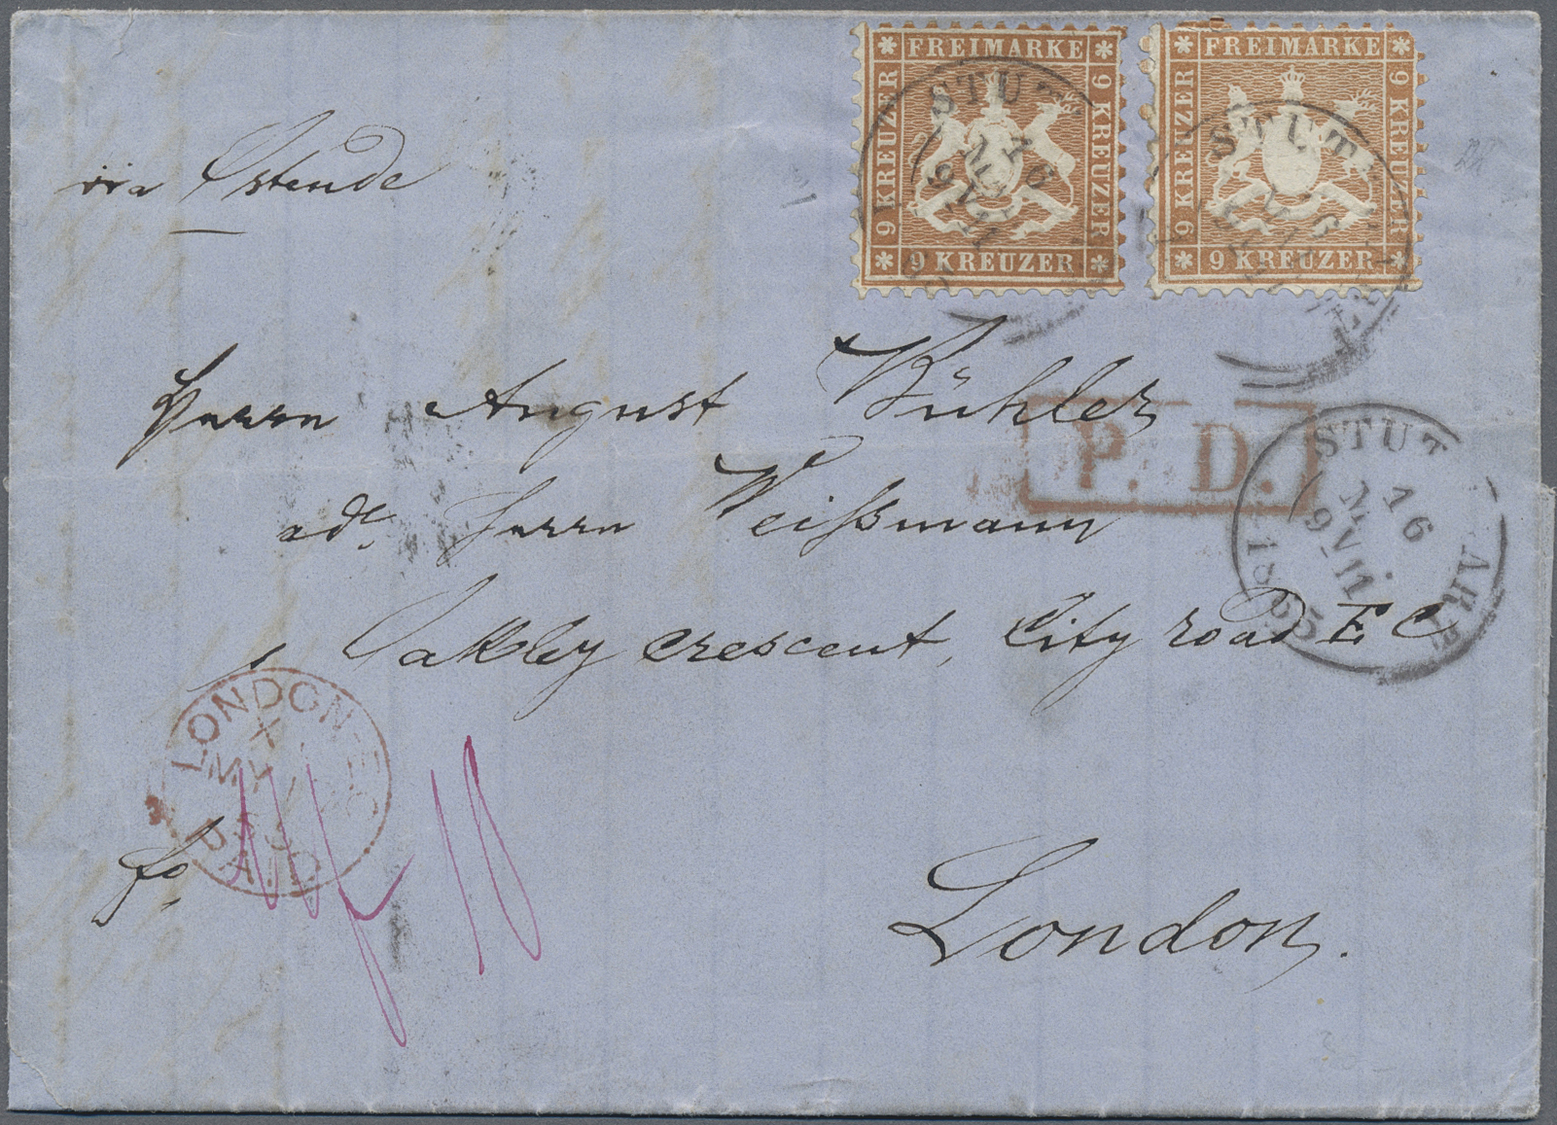 FREIMARKE
9 KREUZER
9 KREUZER
9 KREUZER
FREIMARKE
9 KREUZER
9 KREUZER
9 KREUZER
STUT
STUT
via Ostende
Herrn August Bühler
P. D.
STUT ART
16
9 V 11
1865
adr. Herrn Weißmann
1 Oakley crescent, City road E C
LONDON-EC
X
MY
PAID
fo
London.